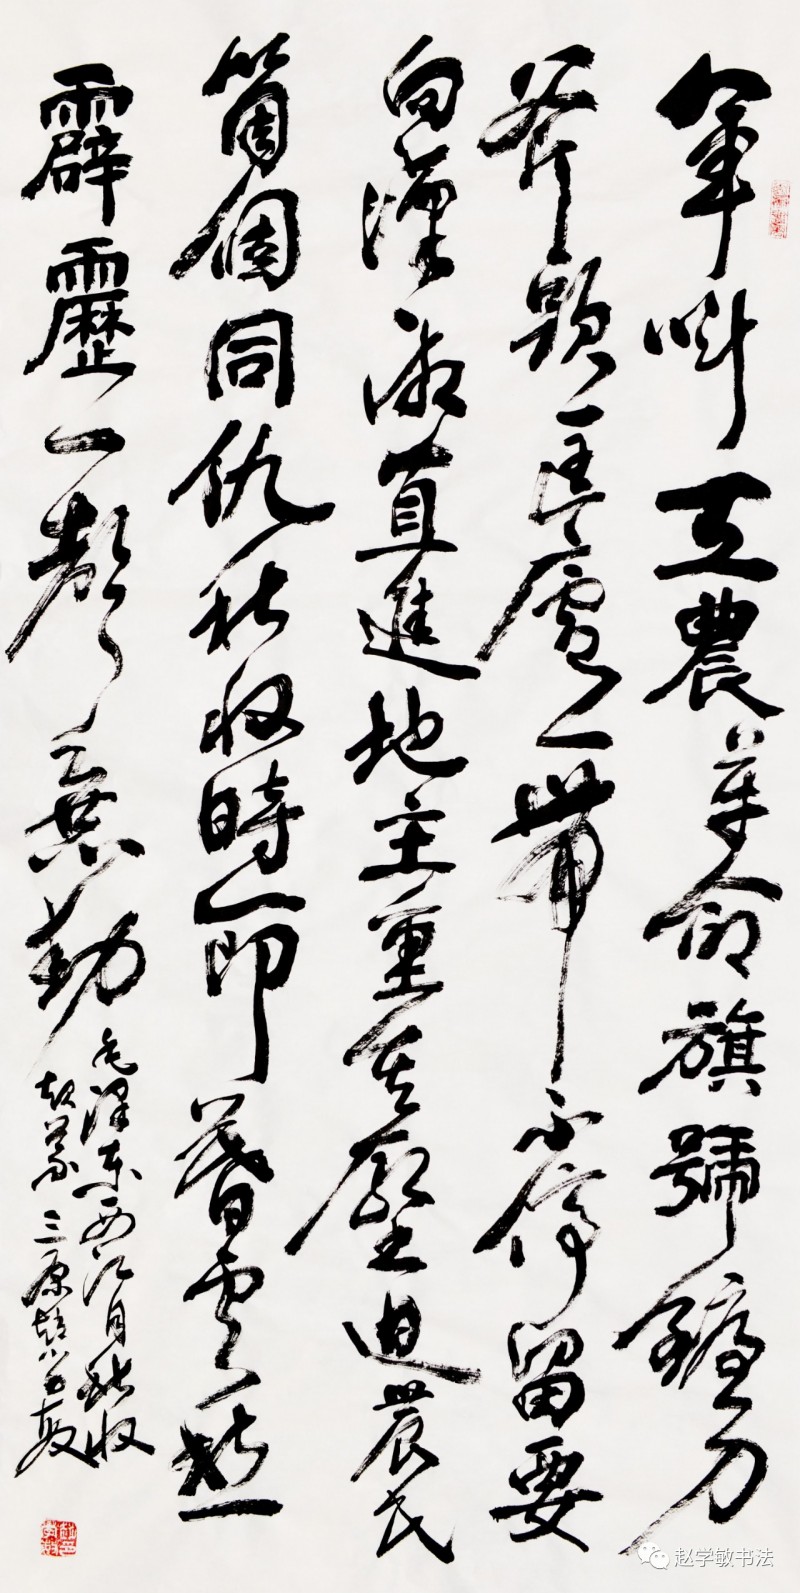 軍叫工農革命旗號鐮刀
斧頭匡廬一帶不停留要
向瀟湘直進地主重重壓迫農民
箇個同仇秋收時節暮雲愁
霹靂一聲暴動
毛澤東西江月秋收
起義 三原趙學敏
赵学敏书法